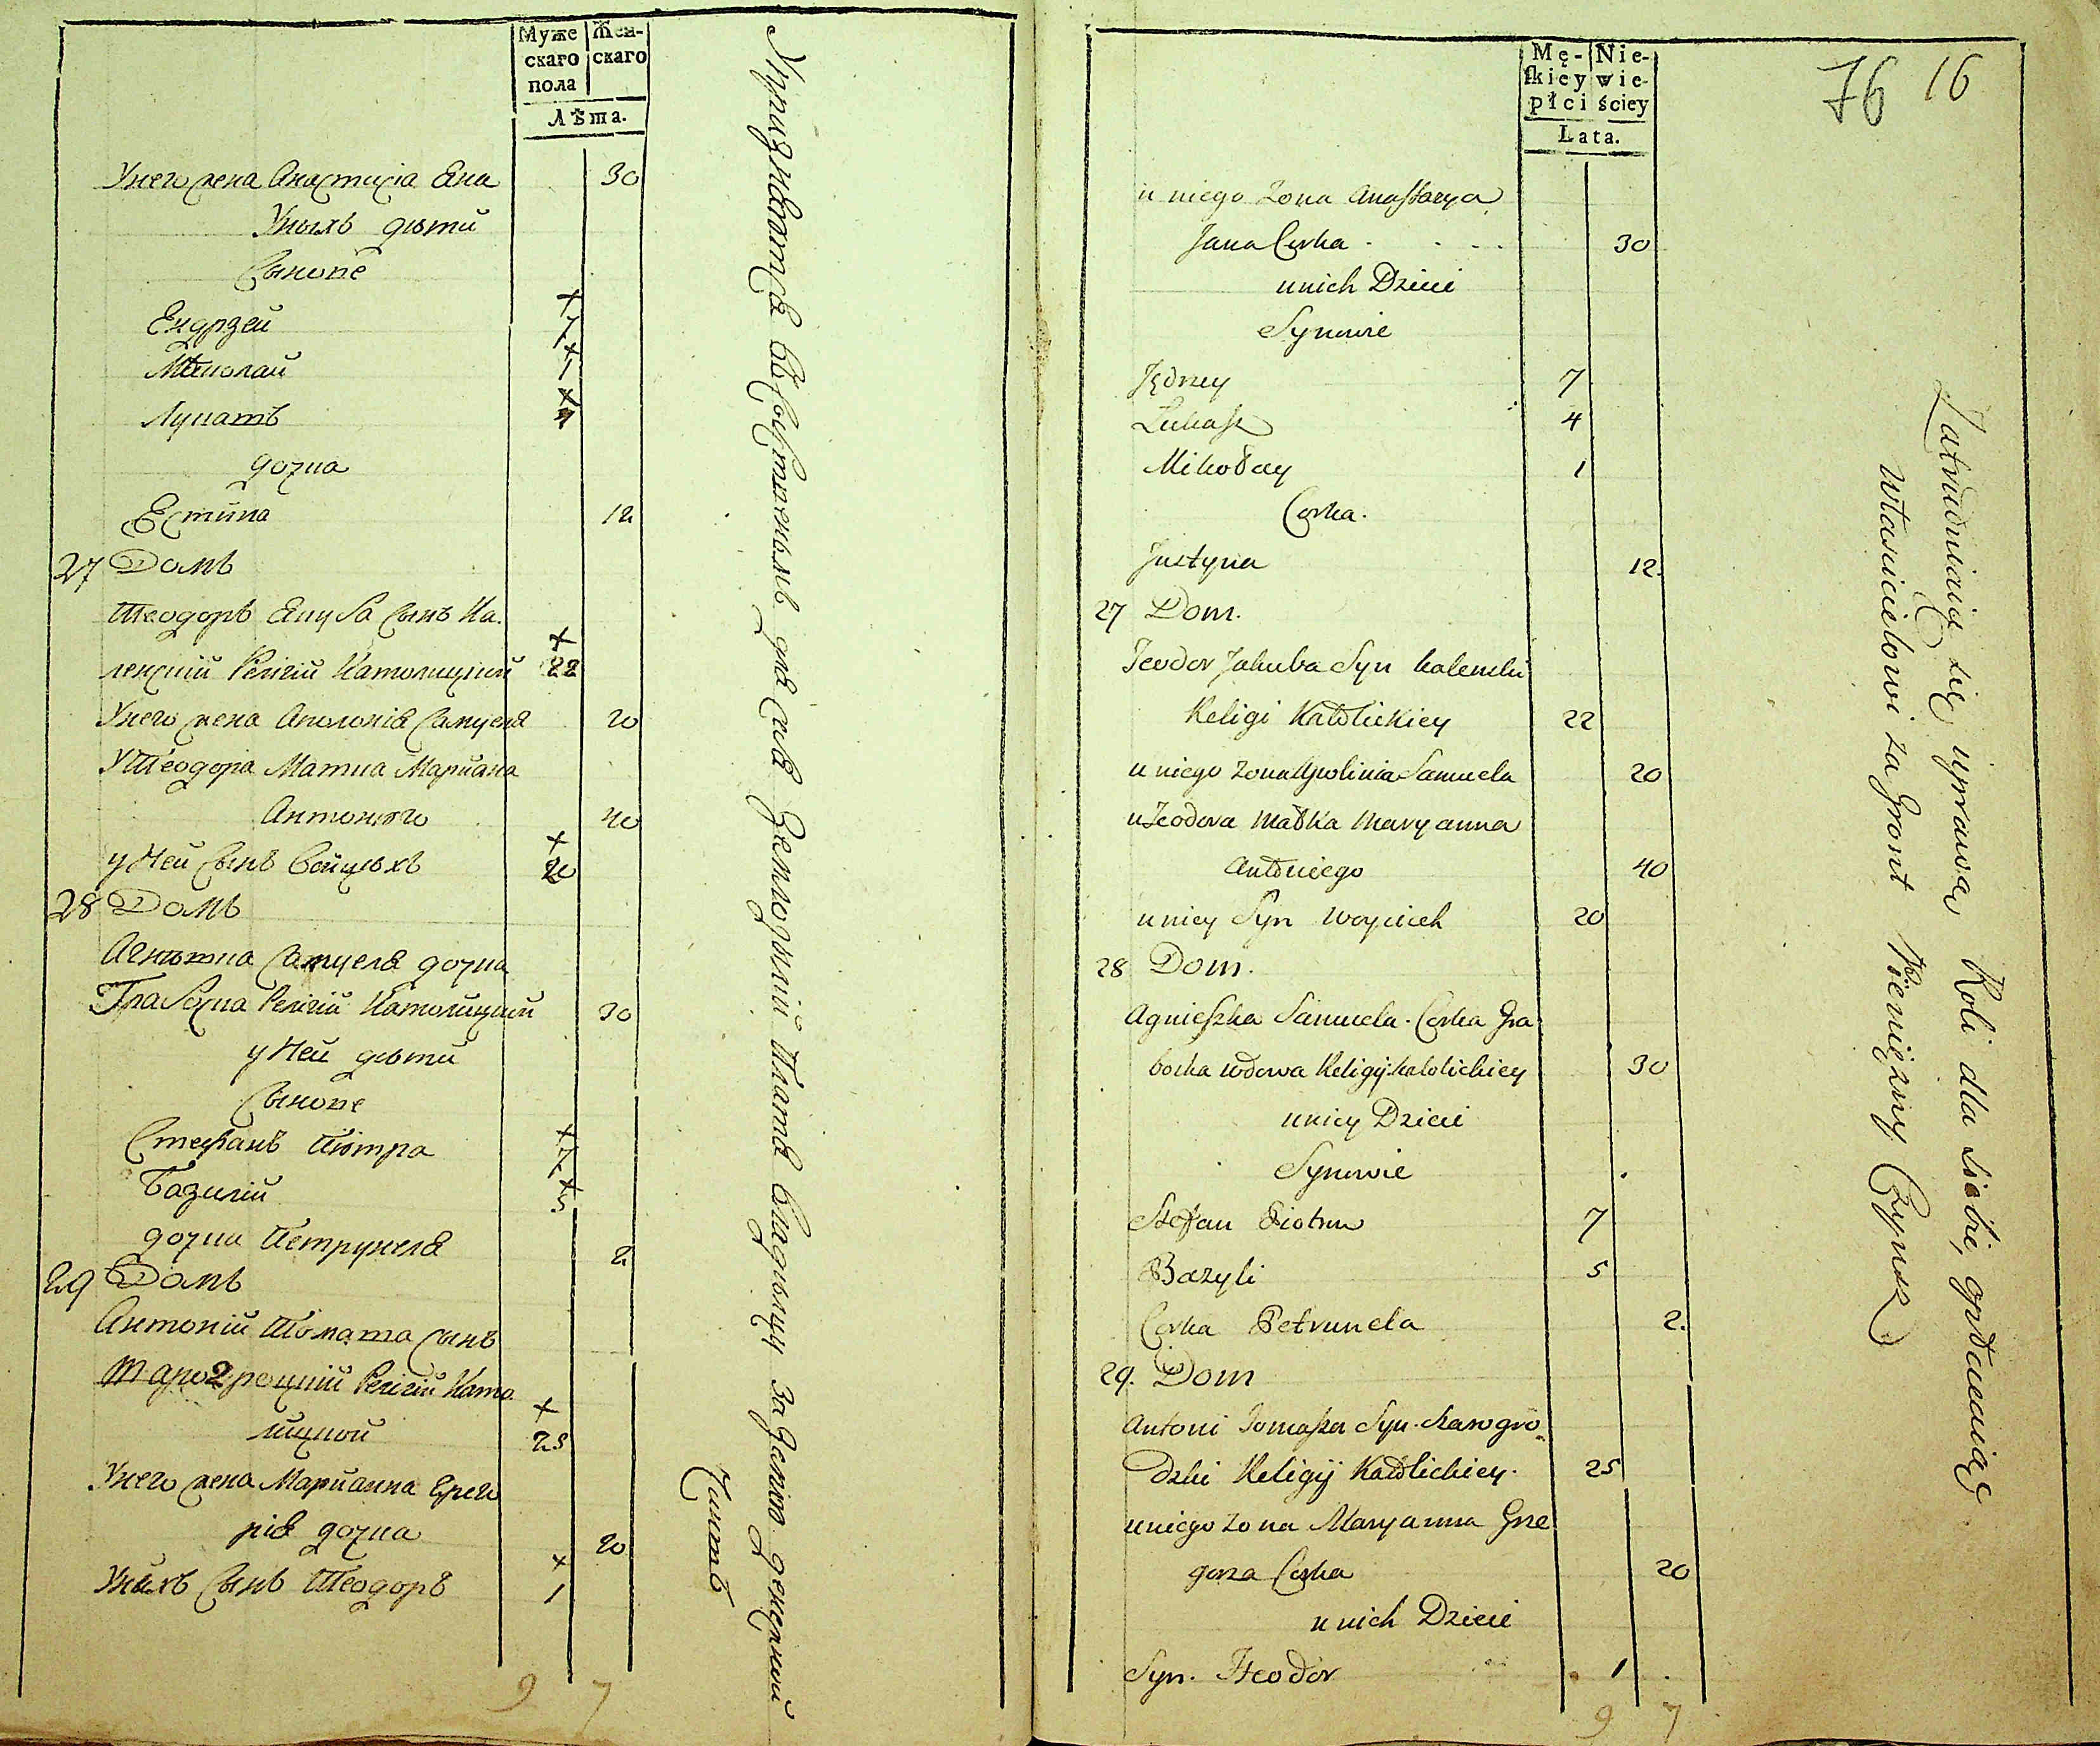 Муже
скаго
пола
Жен-
скаго
Лѣта.
Унего жена Анастасіа Яна 30
Унихъ дѣти
Сынове
Ендрзей + 7
Миколай + 1
Лукашъ + 4
дочка
Естина 12
27 Домъ
Теодоръ Якуба Сынъ Ка-
ленскій Релігіи Католицкой + 22
Унего жена Аполонія Самуеля 20
У Теодора Матка Мариана
Антонего 40
у Ней Сынъ Войцѣхъ + 20
28 Домъ
Агнѣшка Самуеля дочка
Грабоска Релігіи Католицкой 30
у Ней дѣти
Сынове
Стефанъ Піотра + 7
Базилій + 5
дочка Петрунеля 2
29 Домъ
Антоній Томаша Сынъ
Старогродскій Релігіи Като
лицкой + 25
Унего жена Марианна Грего
рія дочка 20
Унихъ Сынъ Теодоръ + 1
9 7
Упражняются для себя Земледѣлій Платя Владѣльцу за Землю денежный
Чиншъ
Mę-
skiey
płci
Nie-
wie-
ściey
Lata.
76 16
u niego Zona Anastazya
Jana Corka 30
u nich Dzieci
Synowie
Jędrzey 7
Lukasz 4
Mikołay 1
Corka.
Justyna 12.
27 Dom.
Teodor Jakuba Syn Kalenski
Religi Katolickiey 22
u niego Zona Apolinia Samuela 20
u Teodora Matka Maryanna
Antoniego 40
u niey Syn Woyciech 20
28 Dom.
Agnieszka Samuela Corka Gra
boska wdowa Religij Katolickiey 30
u niey Dzieci
Synowie
Stefan Piotra 7
Bazyli 5
Corka Petrunela 2.
29. Dom
Antoni Tomasza Syn Starogro
dzki Religij Katolickiey 25
u niego Zona Maryanna Grze
gorza Corka 20
u nich Dzieci
Syn. Teodor 1
9 7
Zatrudniaią się uprawą Roli dla siebie, opłacaiąc
Właścicielowi za Gront Pieniężny Czynsz